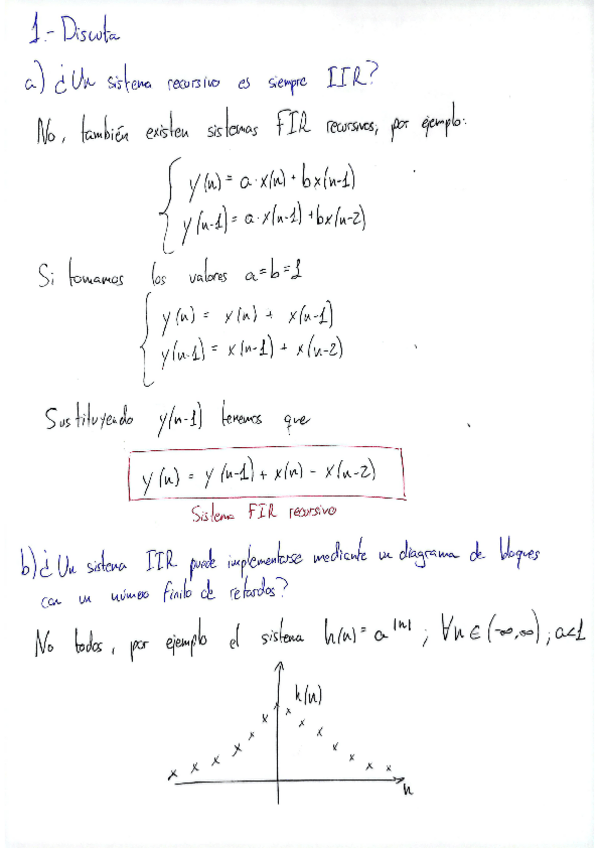 1.- Discuta
a) ¿Un sistema recursivo es siempre IIR?
No, también existen sistemas FIR recursivos, por ejemplo:
y(n) = a·x(n) + bx(n-1)
y(n-1) = a·x(n-1) + bx(n-2)
Si tomamos los valores a=b=1
y(n) = x(n) + x(n-1)
y(n-1) = x(n-1) + x(n-2)
Sustituyendo y(n-1) tenemos que
y(n) = y(n-1) + x(n) - x(n-2)
Sistema FIR recursivo
b) ¿Un sistema IIR puede implementarse mediante un diagrama de bloques
con un número finito de retardos?
No todos, por ejemplo el sistema h(n) = a^|n| ; ∀n ∈ (-∞,∞) ; a<1
h(n)
n